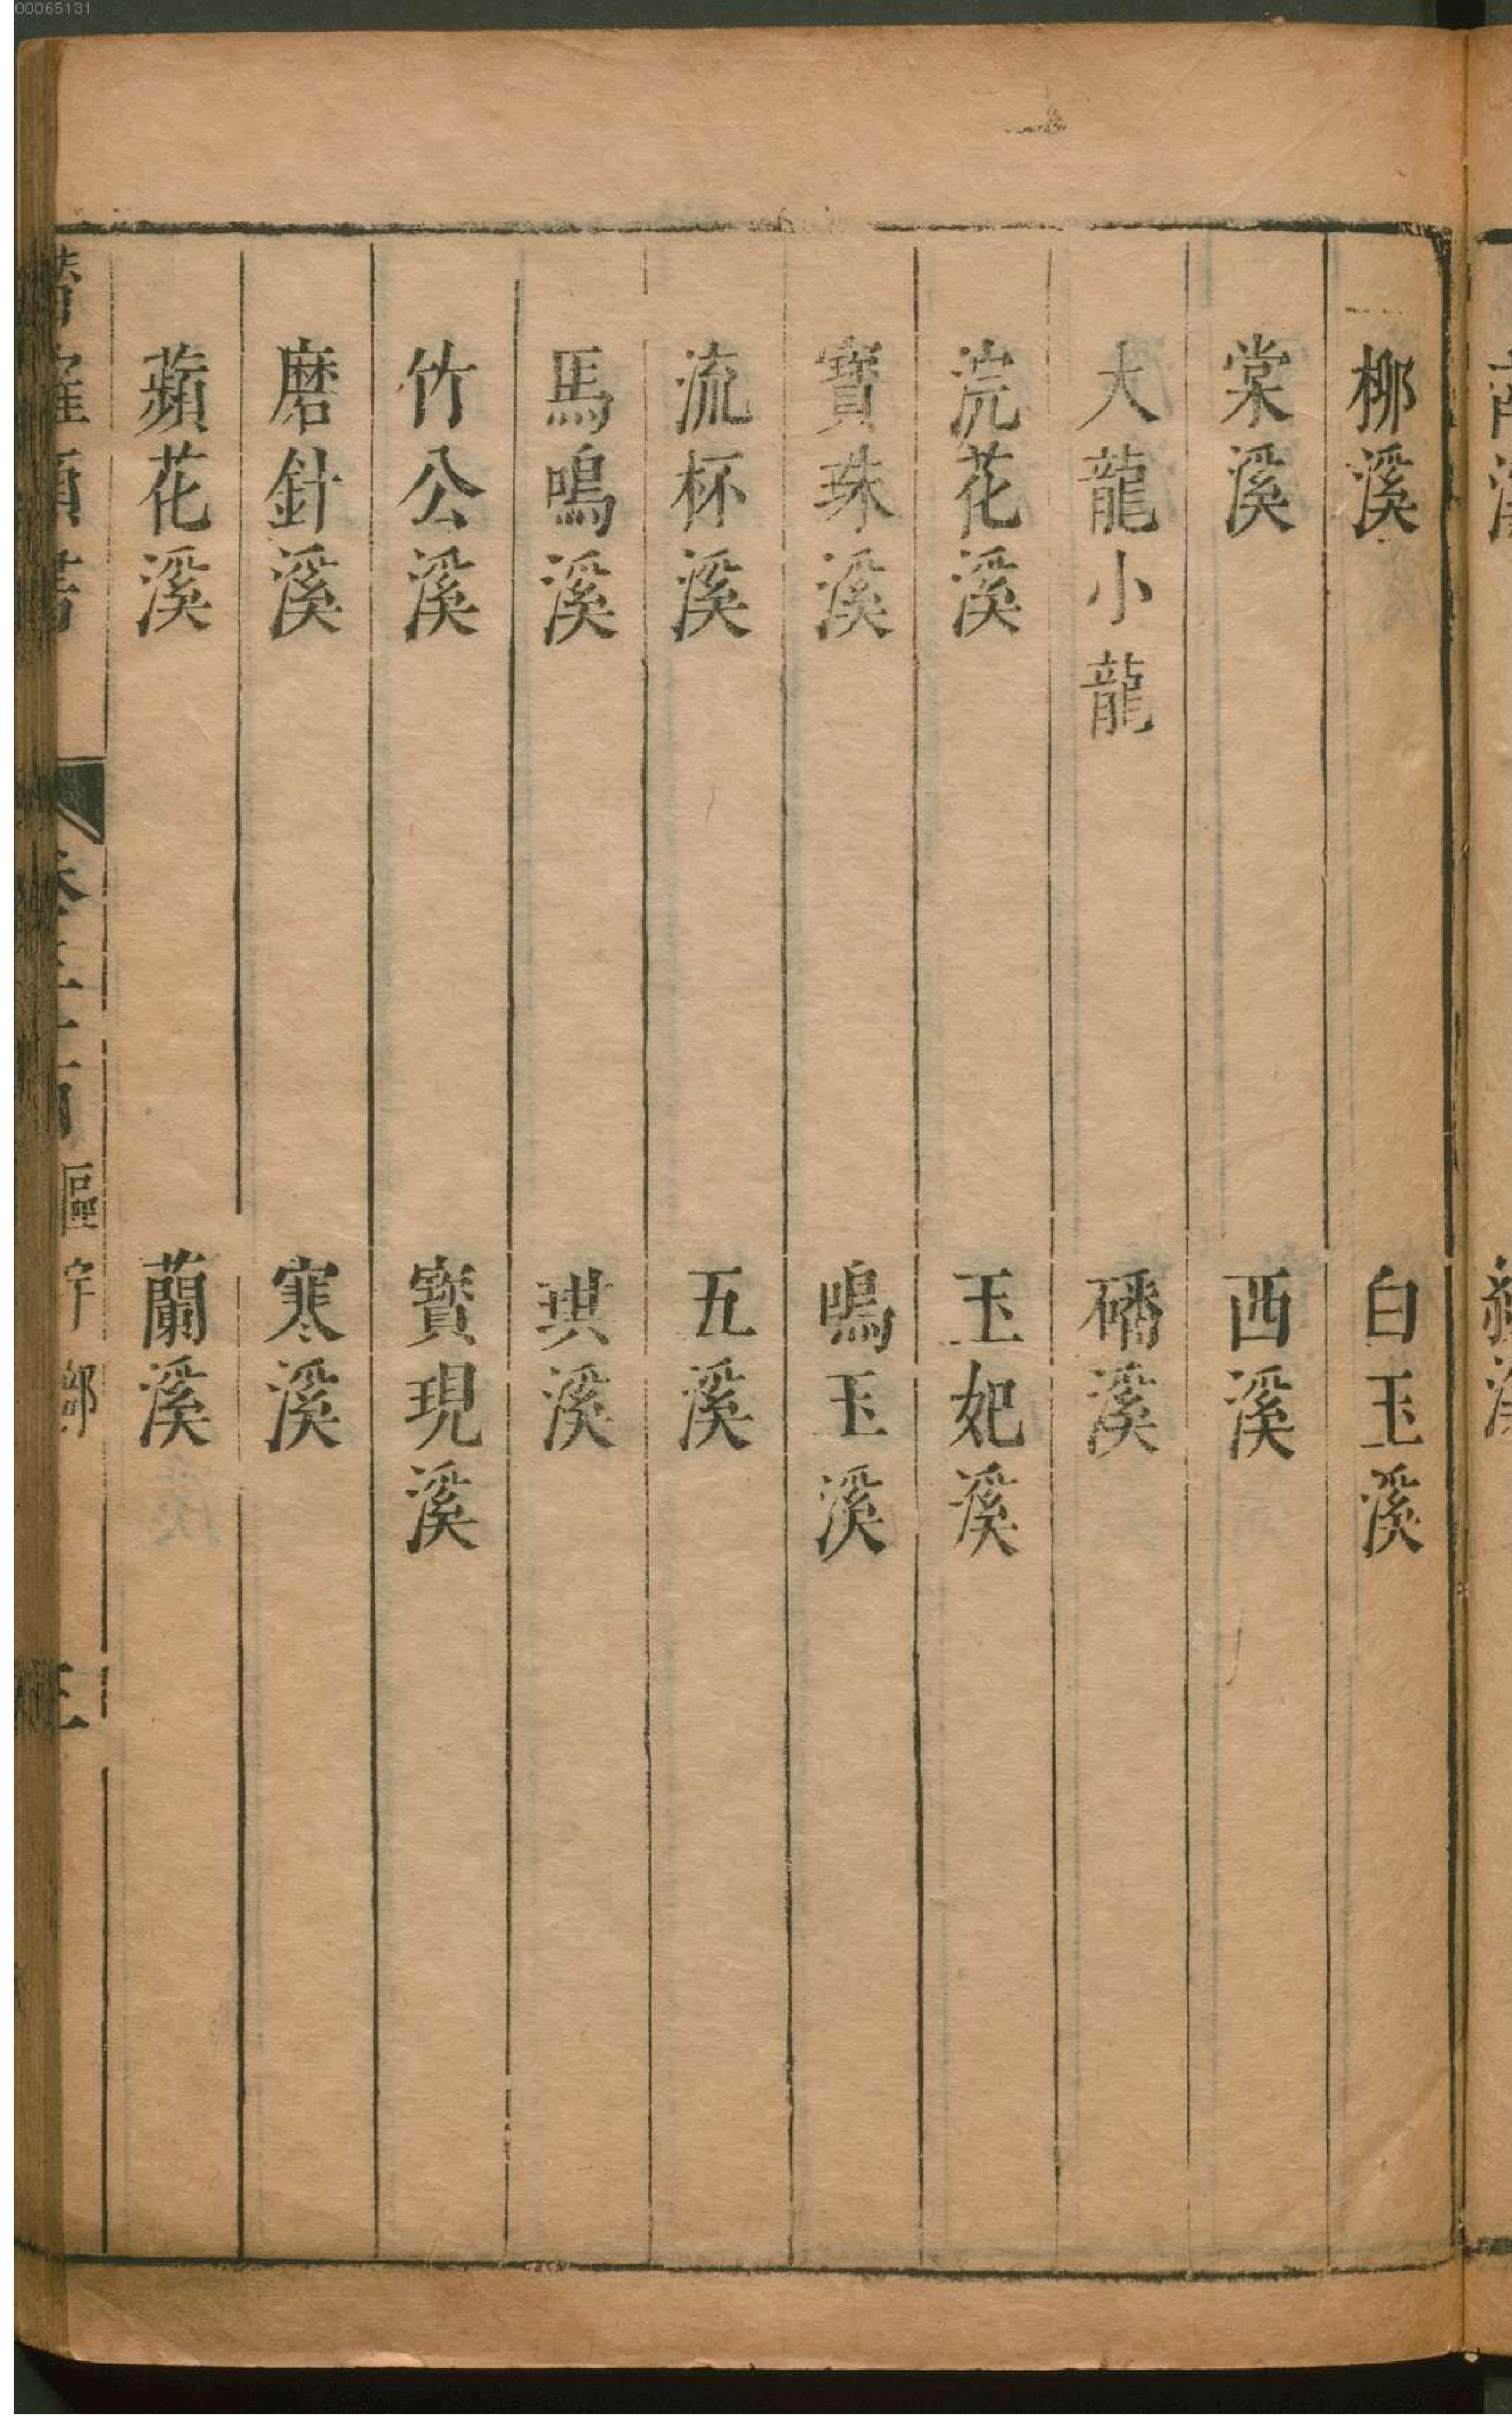 00065131
柳溪
白玉溪
棠溪
西溪
大龍小龍
磻溪
浣花溪
玉妃溪
寶珠溪
鳴玉溪
流杯溪
五溪
馬鳴溪
琪溪
竹公溪
寶現溪
磨針溪
寒溪
蘋花溪
蘭溪